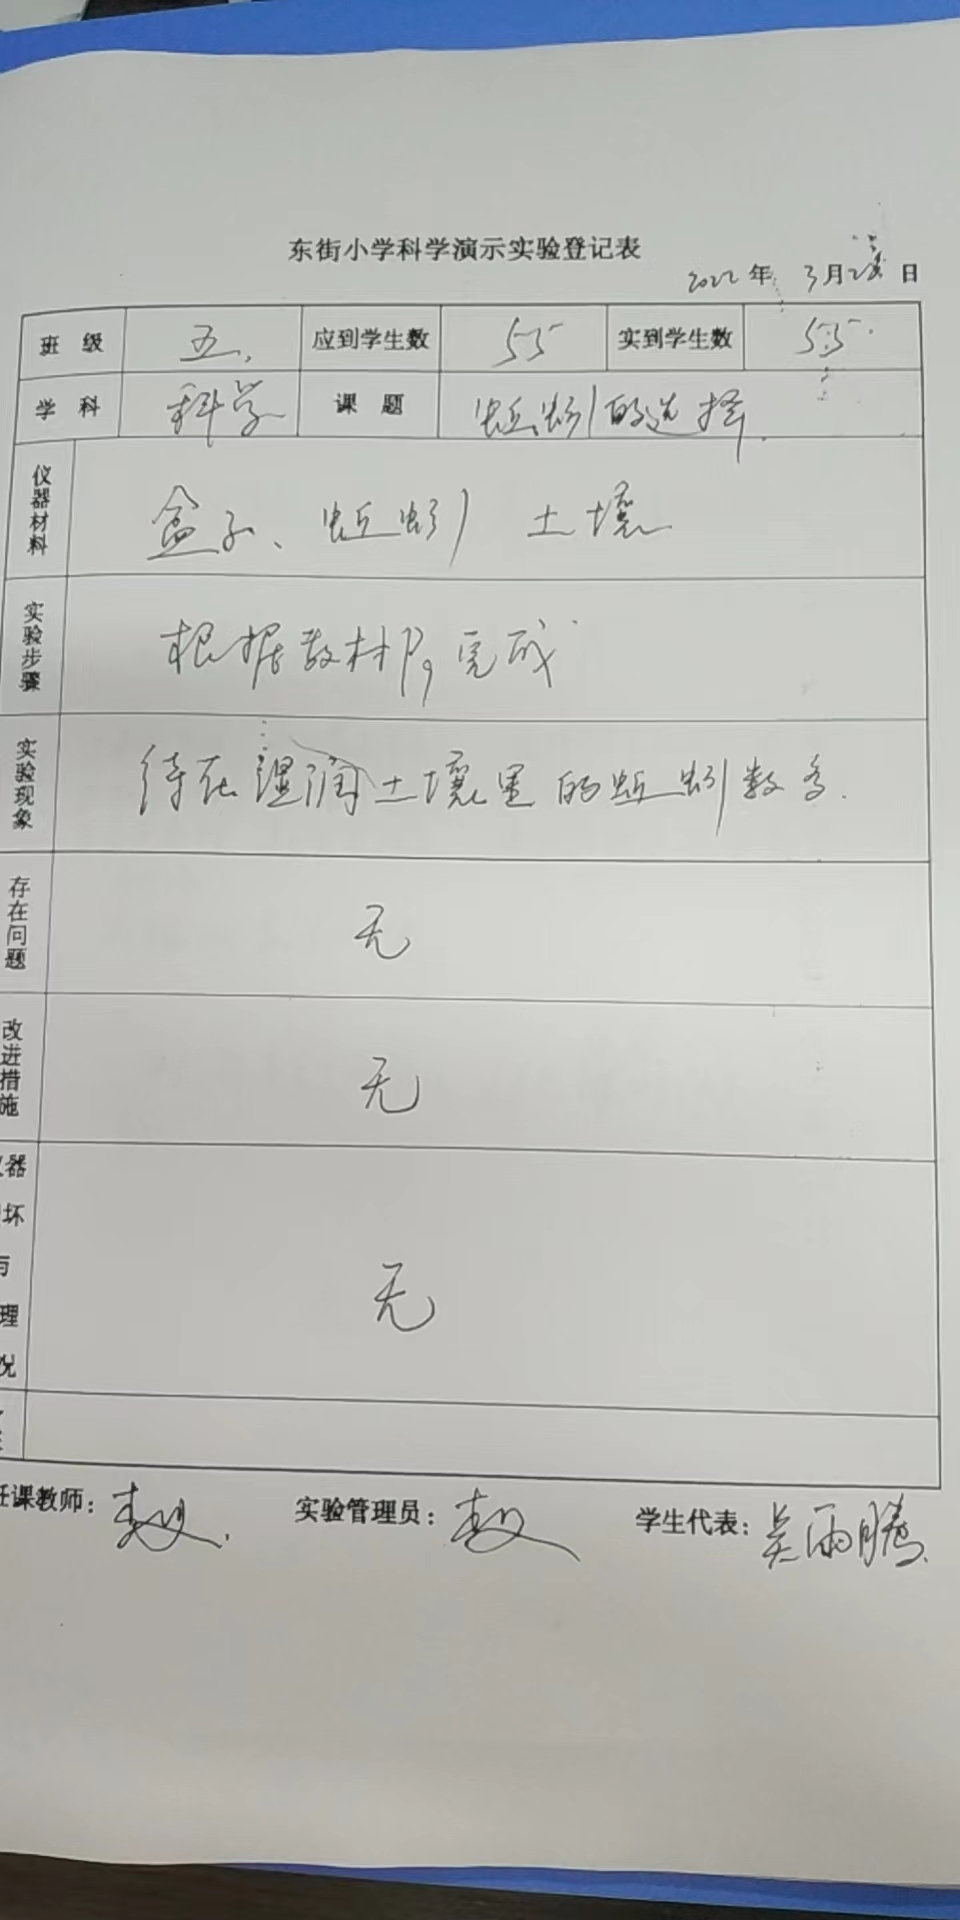 东街小学科学演示实验登记表
2022年 3月2 日
班 级 五. 应到学生数 55 实到学生数 55
学 科 科学 课 题 蚯蚓的选择
仪器材料 盒子、蚯蚓 土壤
实验步骤 根据教材P9完成
实验现象 待在湿润土壤里的蚯蚓数多.
存在问题 无
改进措施 无
器
坏
理
况
无
任课教师: 实验管理员: 学生代表: 吴雨腾